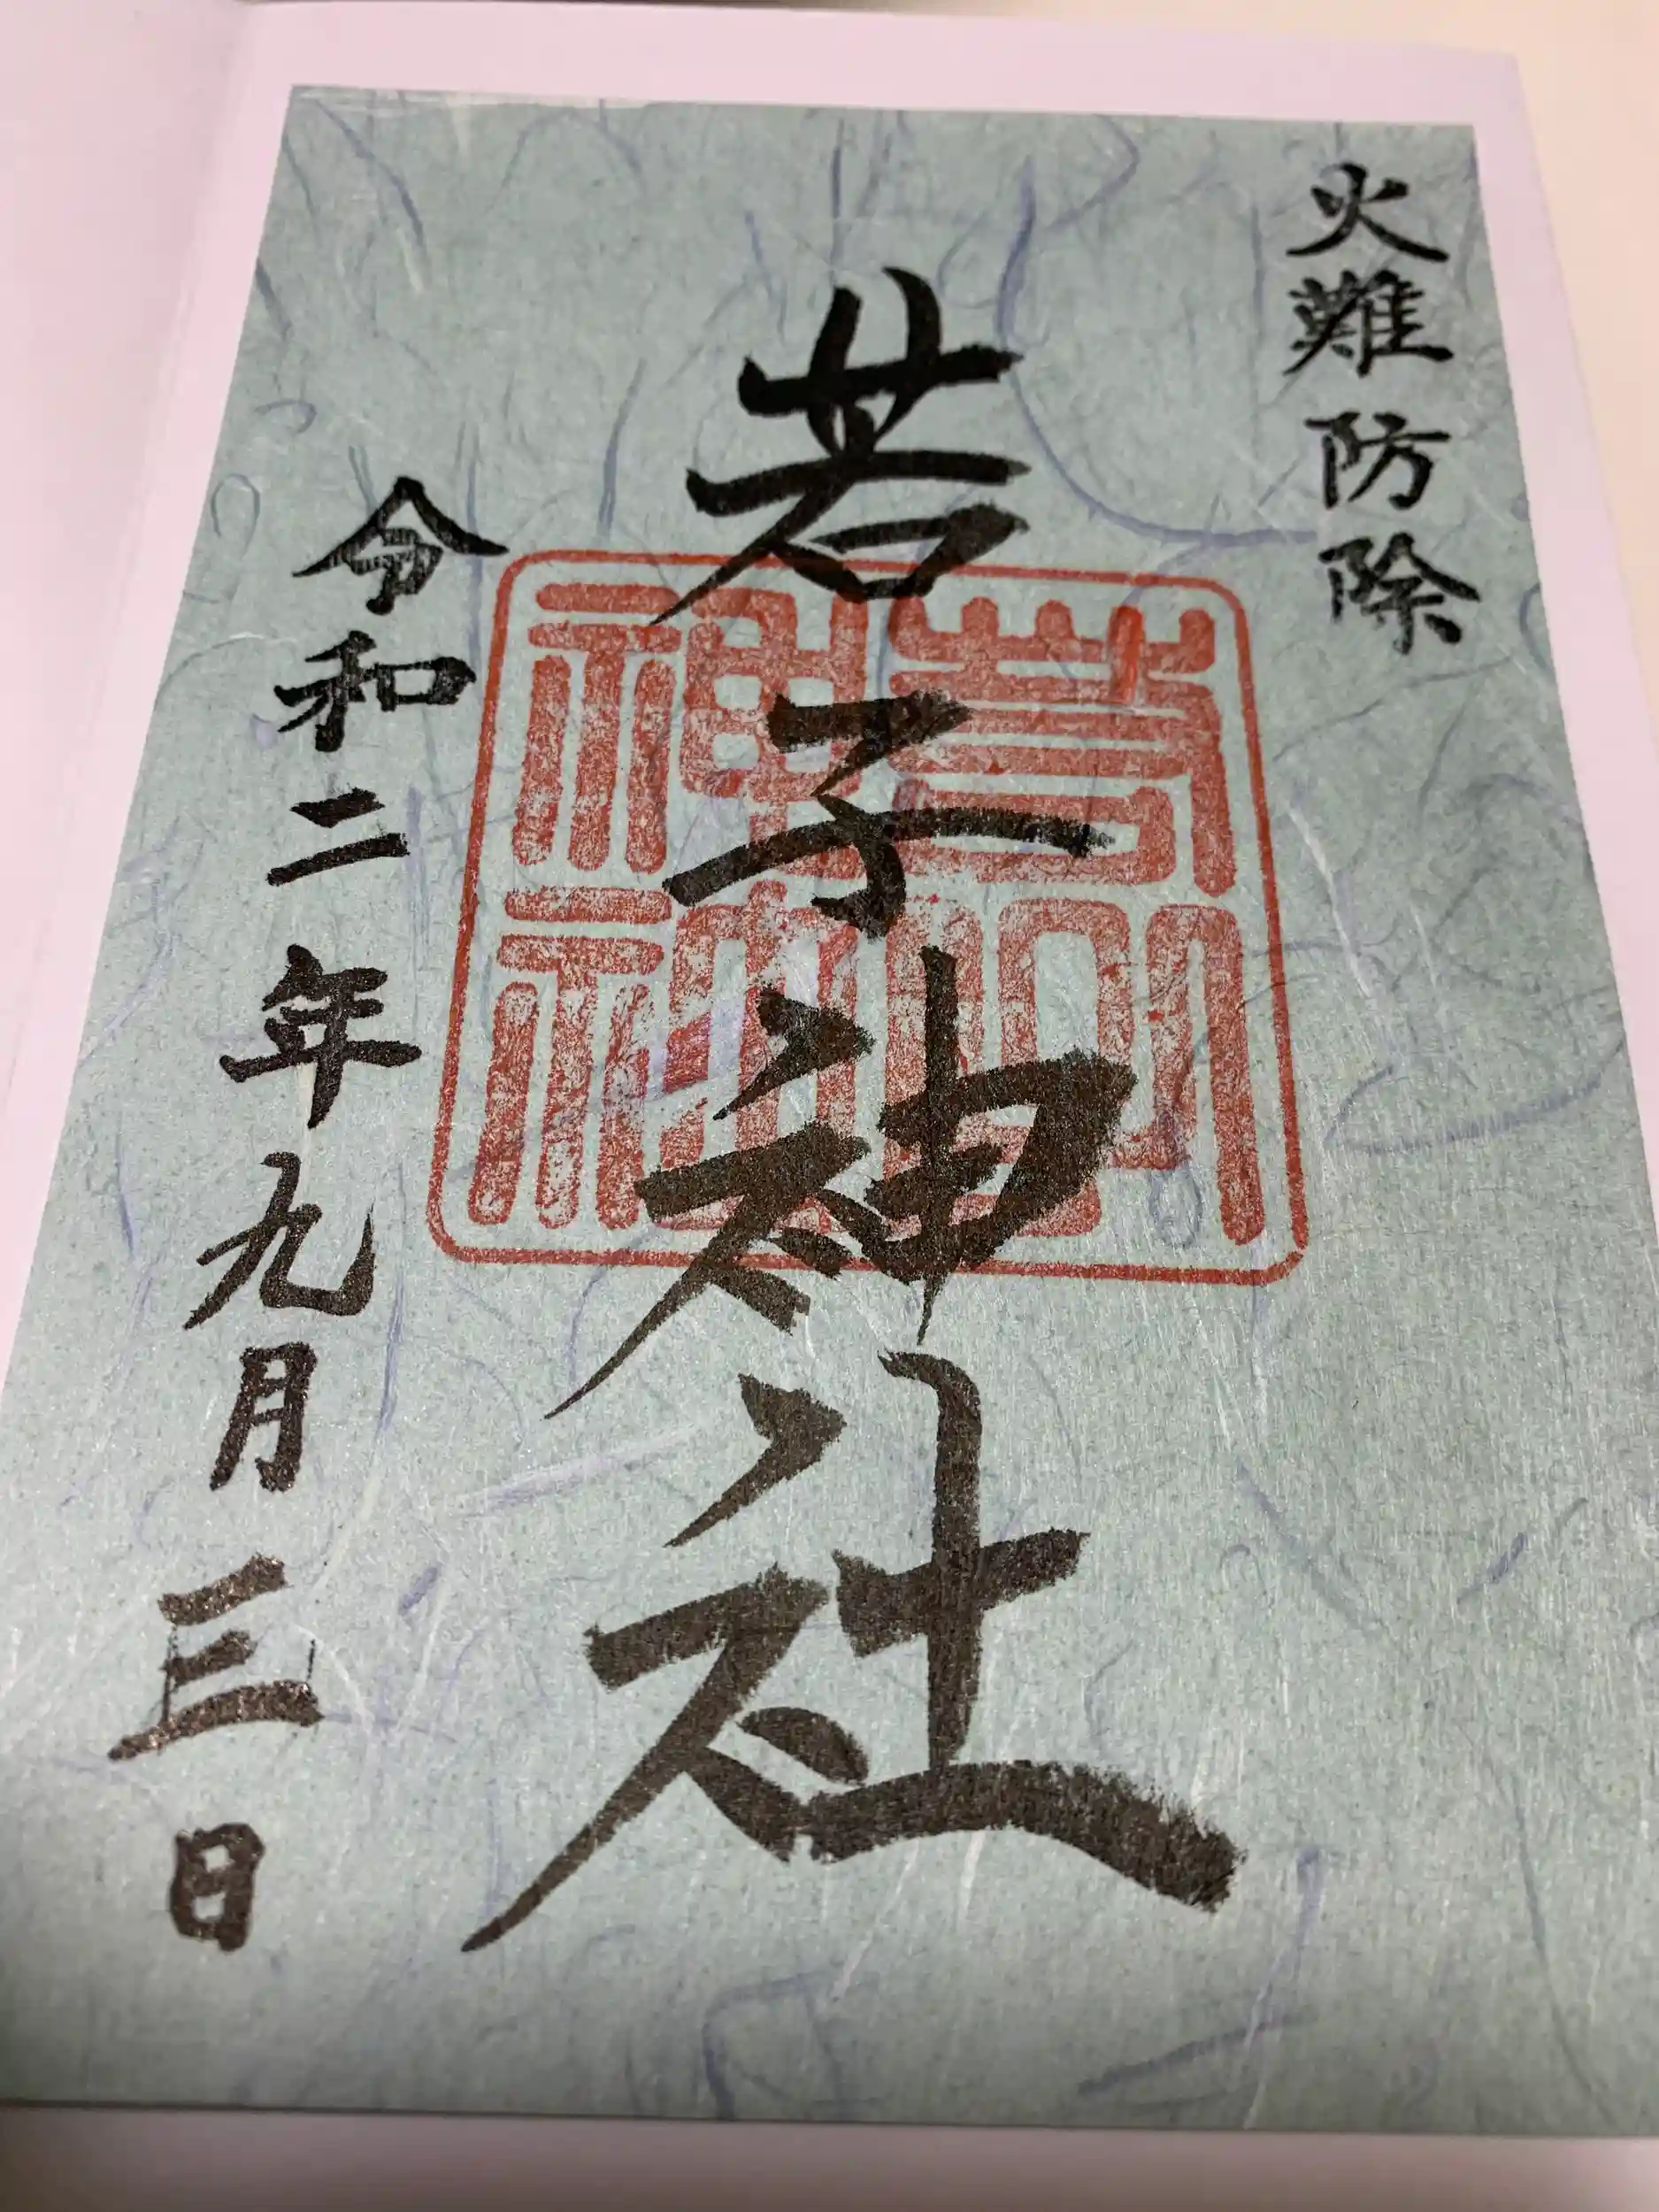 火難防除
若子神社
令和二年九月三日